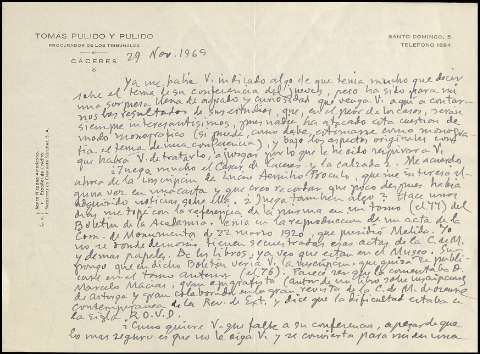 TOMAS PULIDO Y PULIDO
PROCURADOR DE LOS TRIBUNALES
CÁCERES
SANTO DOMINGO, 5
TELEFONO 1884
29 Nov. 1969
Ya me había V. indicado algo de que tenía mucho que decir
sobre el tema de su conferencia del jueves, pero ha sido para mí
una sorpresa llena de agrado y curiosidad que venga V. aquí a contar-
nos los resultados de sus estudios, que, en el peor de los casos, serán
siempre interesantísimos, pues nadie ha atacado esta cuestión de
modo monográfico (si puede, como debe, estimarse como monogra-
fía el tema de una conferencia), y bajo los aspectos originales con
que habrá V. de tratarlo, a juzgar por lo que le he oído referir a V.
¿Juega mucho el Cáceres y la calzada? Me acuerdo
ahora de la inscripción de Lucio Aemilio Proculo, que me interesó al-
guna vez en una carta y que creo recordar que poco después había
adquirido noticias sobre ella. ¿Juega también algo? Hace unos
días me topé con la referencia de la misma en un tomo (el 77) del
Boletín de la Academia. Venía en la reproducción de un acta de la
Com. de Monumentos de 22 marzo 1920, que presidió Mélida. Yo
no sé donde demonios tienen secuestradas esas actas de la C. de M.
y demás papeles. De los libros, ya veo que están en el Museo. Su-
pongo que en dicho Boletín vería V. la inscripción, que quizá se publi-
case en el tomo anterior (el 76). Parece ser que la comentaba D.
Marcelo Macías, gran epigrafista (autor de un libro sobre inscripciones
de Astorga y gran colaborador en la gran revista de la C. de M. de Orense
contemporánea de la Rev. de Ext., y dice que la dificultad estaba en
la sigla R.O.V.D.
¿Cómo quiere V. que falte a su conferencia, a pesar de que
lo más seguro es que no le oiga V. y se convierta para mí en una